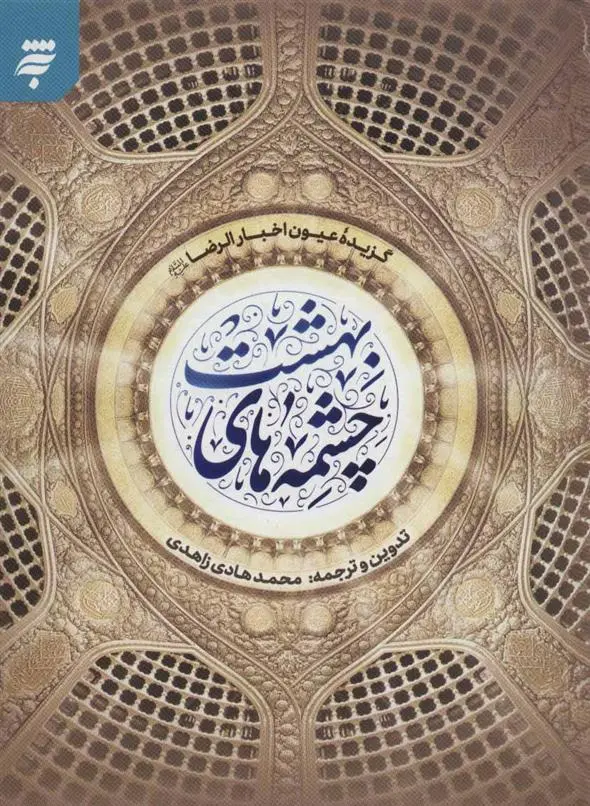 گزیدهٔ عیون اخبار الرضا علیه‌السلام
چشمه‌های
بهشت
تدوین و ترجمه: محمدهادی زاهدی